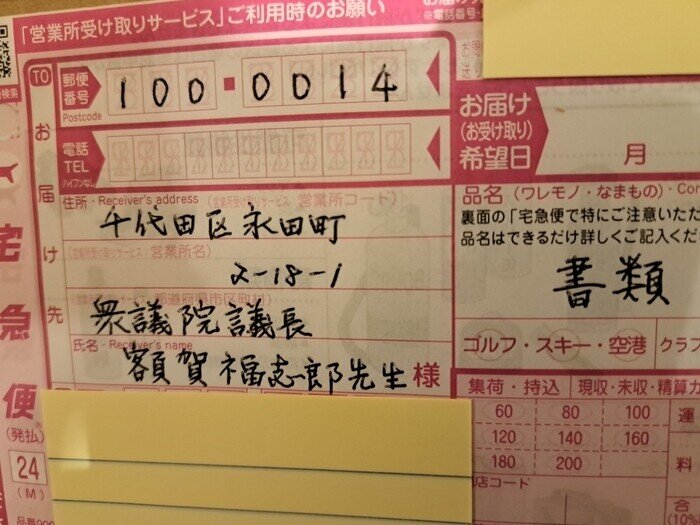 「営業所受け取りサービス」ご利用時のお願い
TO
お届け先
郵便番号
Postcode
100-0014
電話
TEL
ハイフンなし
住所・Receiver's address (営業所受け取りサービス・営業所コード)
千代田区永田町
(営業所受け取りサービス・営業所名)
2-18-1
都道府県市区町村
衆議院議長
氏名・Receiver's name
額賀福志郎先生様
お届け
(お受け取り)
希望日
月
品名 (ワレモノ・なまもの)・Con
裏面の「宅急便で特にご注意いただ
品名はできるだけ詳しくご記入くだ
書類
ゴルフ・スキー・空港
クラブ
集荷・持込
現収・未収・精算
60 80 100
120 140 160
180 200
運
料
店コード
合
宅急便
(発払)
24
(M)